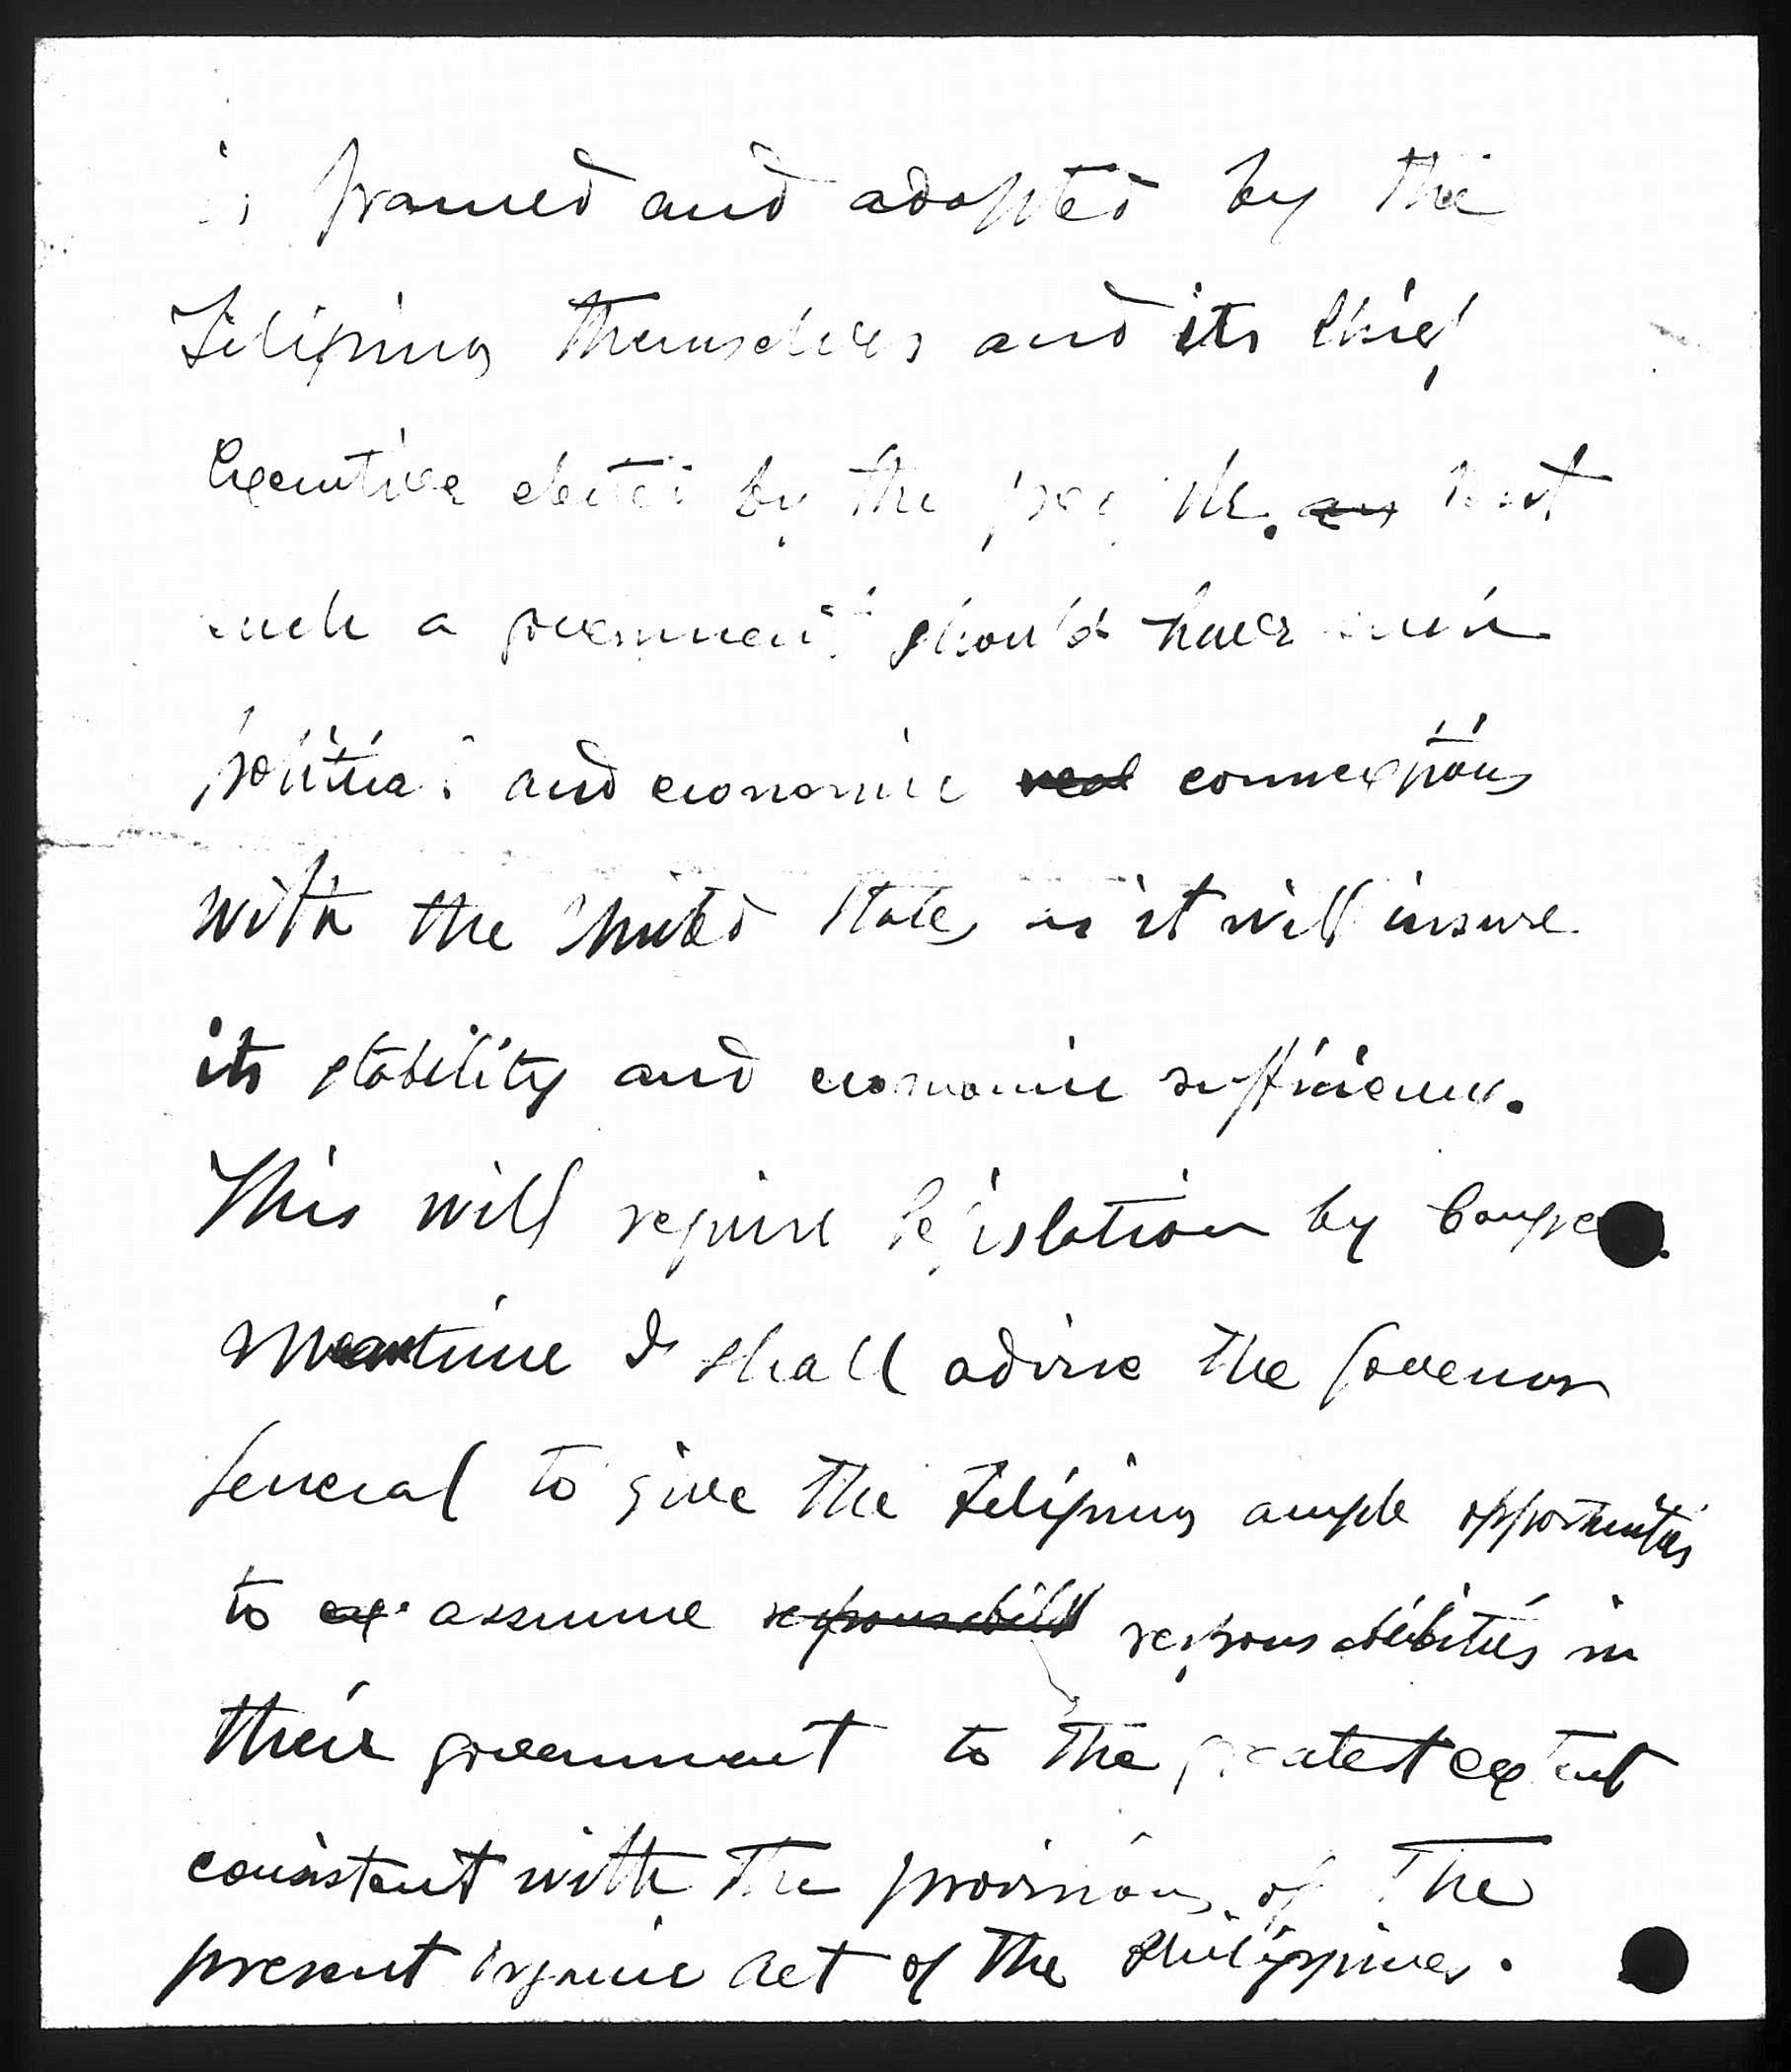 is framed and adopted by the
Filipinos themselves and its Chief
Executive elected by the people. but
such a government should have such
political and economic connextions
with the United States as it will insure
its stability and economic sufficiency.
This will require legislation by Congress.
Meantime I shall advise the Governor
General to give the Filipinos ample opportunities
to assume responsibilities in
their government to the greatest extent
consistent with the provisions of the
present organic act of the Philippines.